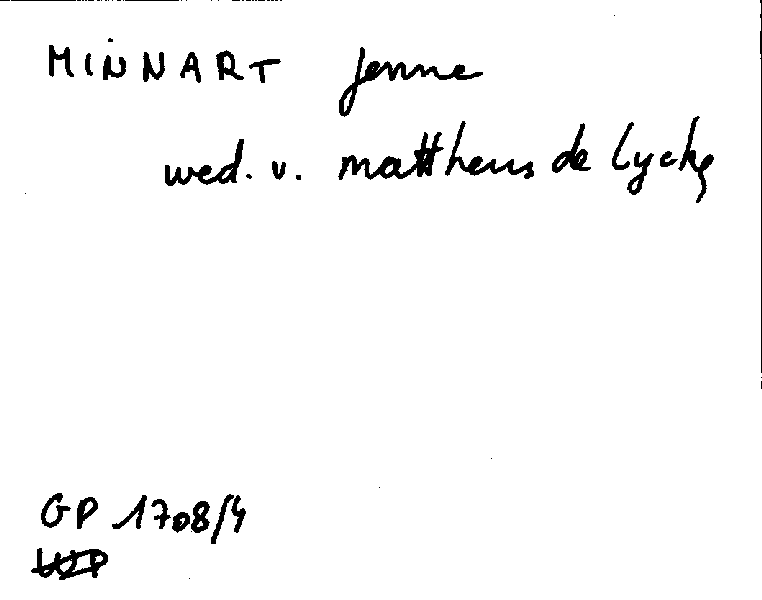 MINNART Jenne
wed. v. mattheus de Lycke
GP 1708/4